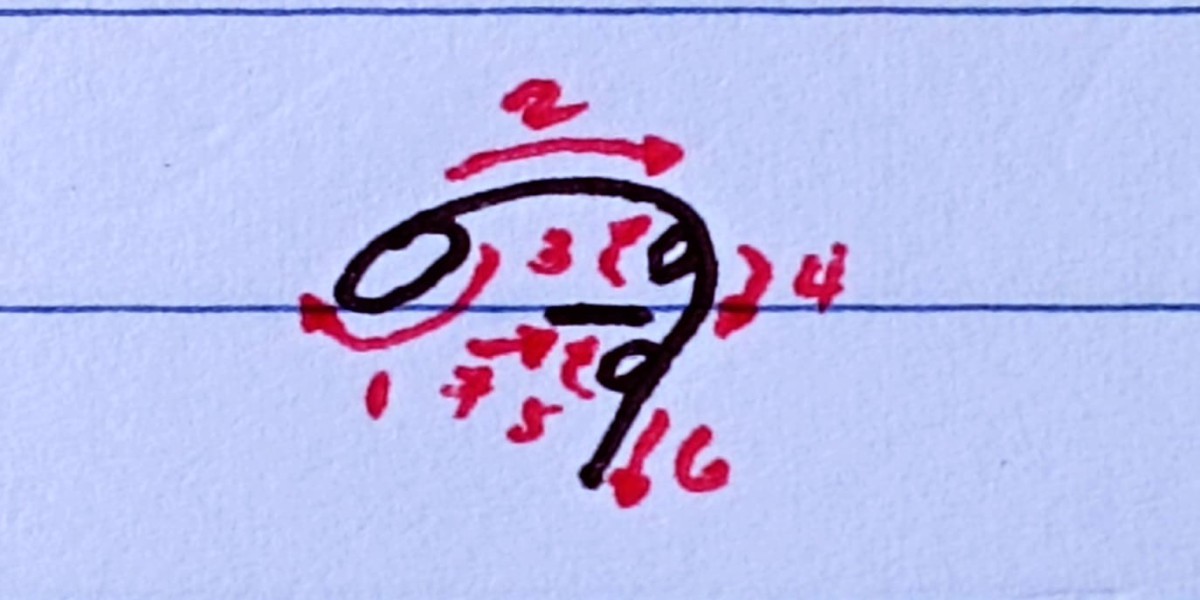 2
3 4
1 7
5 6